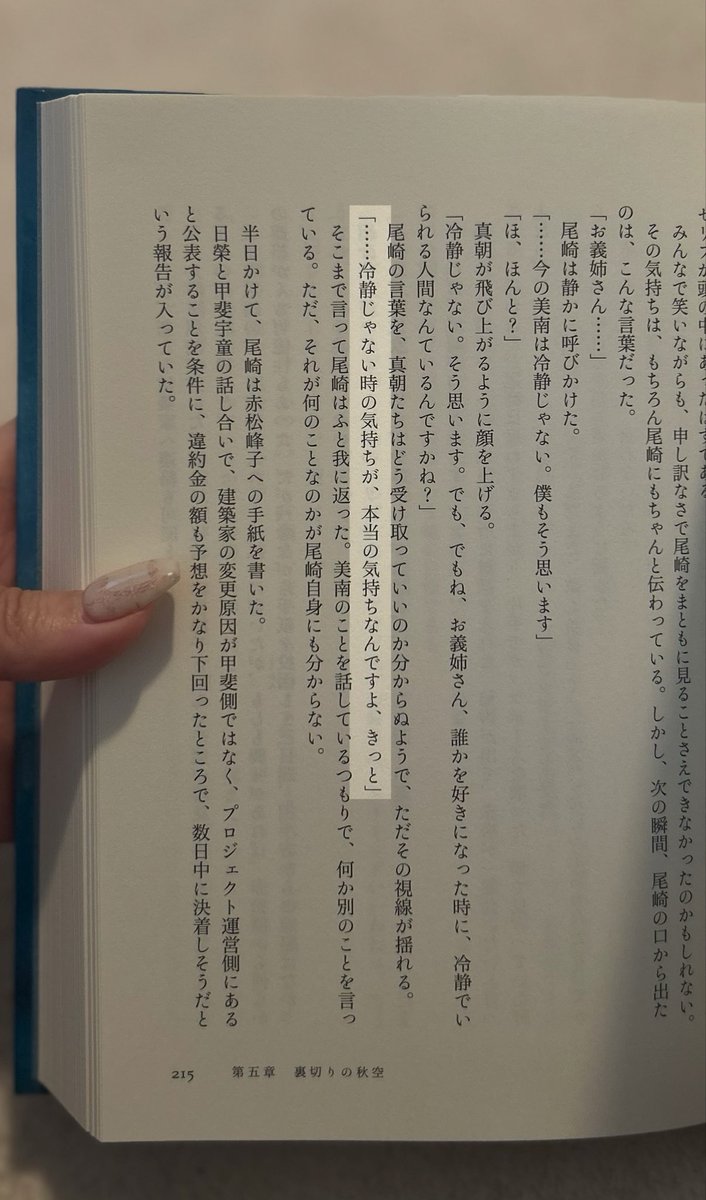 みんなで笑いながらも、申し訳なさで尾崎をまともに見ることさえできなかったのかもしれない。
その気持ちは、もちろん尾崎にもちゃんと伝わっている。しかし、次の瞬間、尾崎の口から出た
のは、こんな言葉だった。
「お義姉さん……」
尾崎は静かに呼びかけた。
「……今の美南は冷静じゃない。僕もそう思います」
「ほ、ほんと？」
真朝が飛び上がるように顔を上げる。
「冷静じゃない。そう思います。でも、でもね、お義姉さん、誰かを好きになった時に、冷静でい
られる人間なんているんですかね？」
尾崎の言葉を、真朝たちはどう受け取っていいのか分からぬようで、ただその視線が揺れる。
「……冷静じゃない時の気持ちが、本当の気持ちなんですよ、きっと」
そこまで言って尾崎はふと我に返った。美南のことを話しているつもりで、何か別のことを言っ
ている。ただ、それが何のことなのかが尾崎自身にも分からない。
半日かけて、尾崎は赤松峰子への手紙を書いた。
日榮と甲斐宇童の話し合いで、建築家の変更原因が甲斐側ではなく、プロジェクト運営側にある
と公表することを条件に、違約金の額も予想をかなり下回ったところで、数日中に決着しそうだと
いう報告が入っていた。
215 第五章 裏切りの秋空